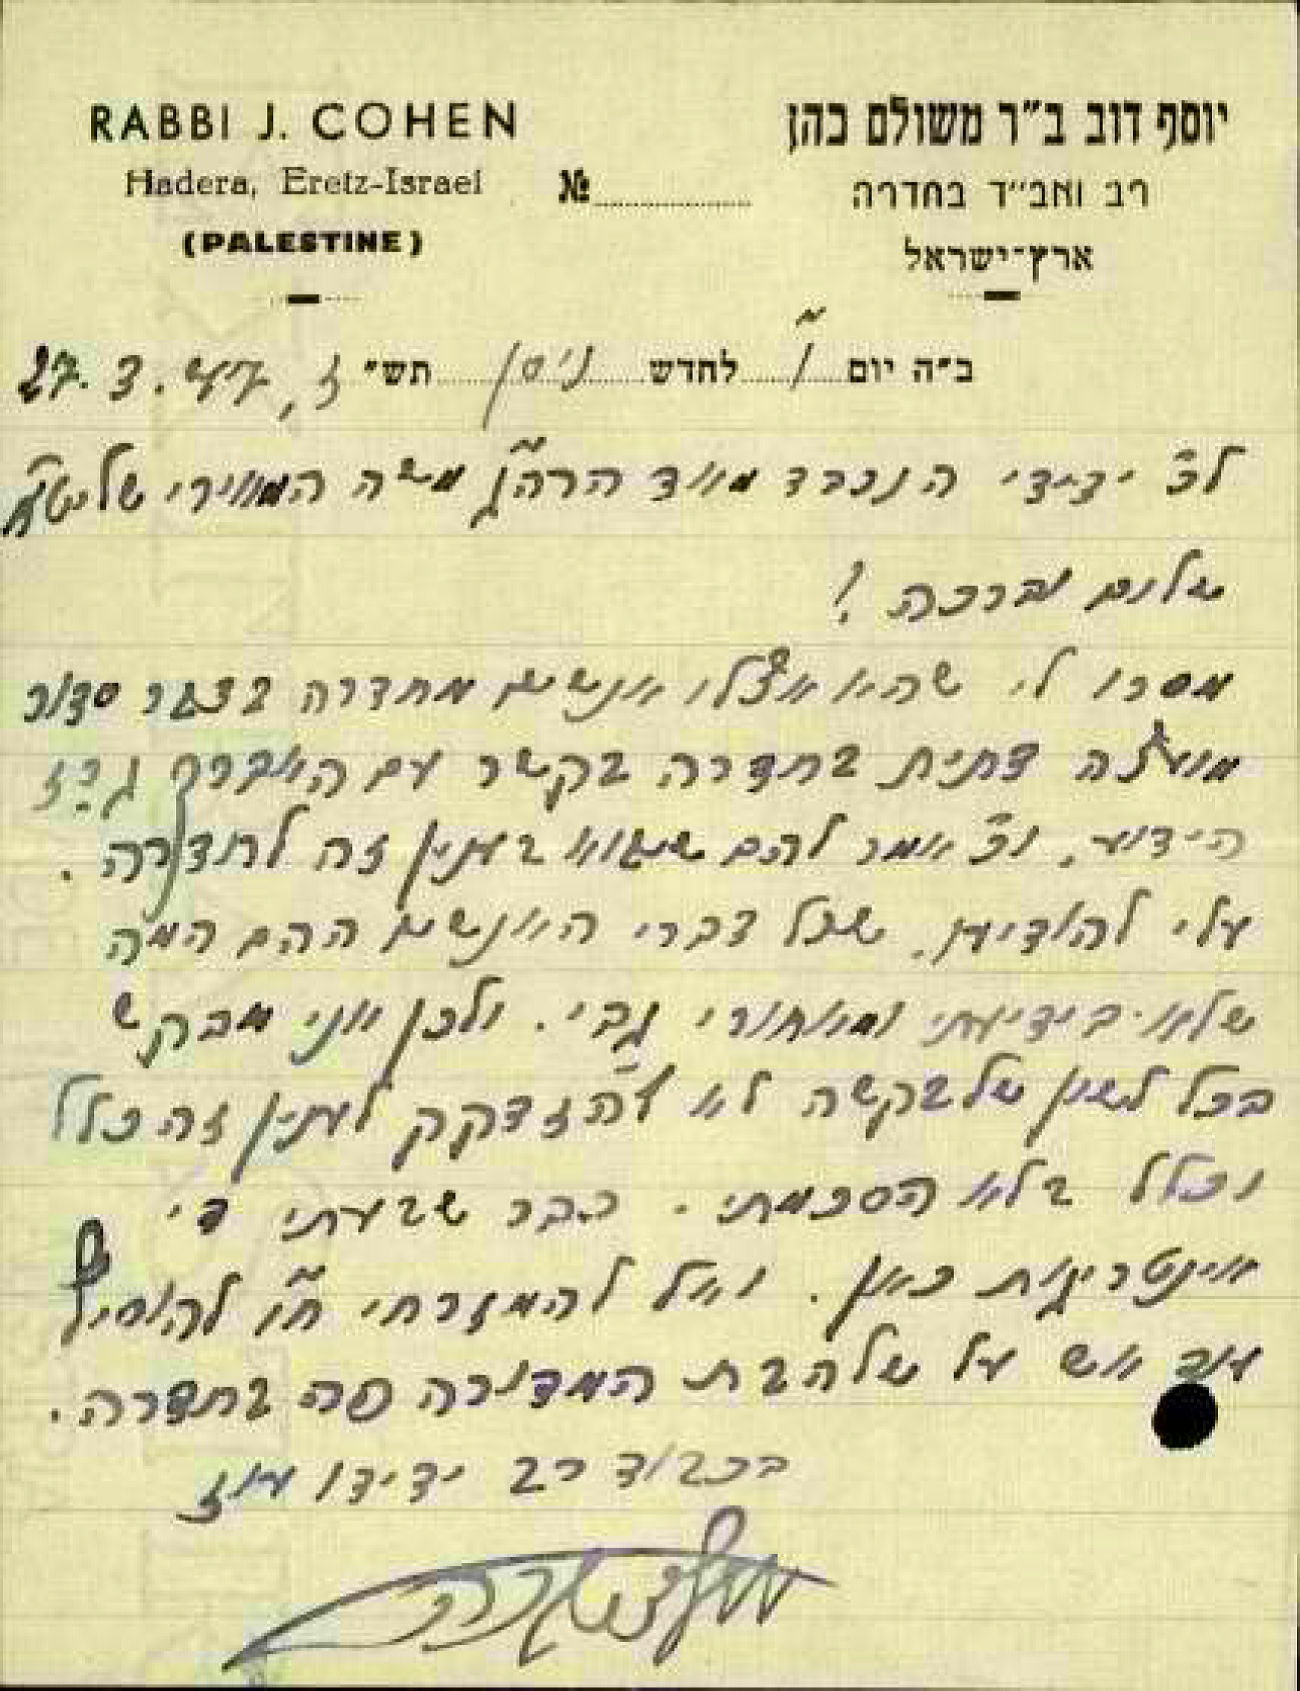 RABBI J. COHEN
Hadera, Eretz-Israel
(PALESTINE)
№
יוסף דוב ב״ר משולם כהן
רב ואב״ד בחדרה
ארץ־ישראל
ב״ה יום ו׳ לחדש ניסן תש״ ז, 27.3.47
לכ׳ ידידי הנכבד מאד הרה״ג משה המאירי שליט״א
שלום וברכה!
מסרו לי שהיו אצלו אנשים מחדרה בדבר סדור
מועצה דתית בחדרה בקשר עם האברך
הידוע. וכ׳ אמר להם שיבוא בענין זה לחדרה.
עלי להודיעו. שכל דברי האנשים ההם המה
שלא בידיעתי ומאחורי גבי. ולכן אני מבקש
בכל לשון של בקשה לא להזדקק לענין זה כלל
וכלל בלא הסכמתי. כבר שבעתי די
אינטריגות כאן. ואל להמזרחי ח״ו להוסיף
עוד אש על שלהבת המדורה פה בחדרה.
בכבוד רב ידידו